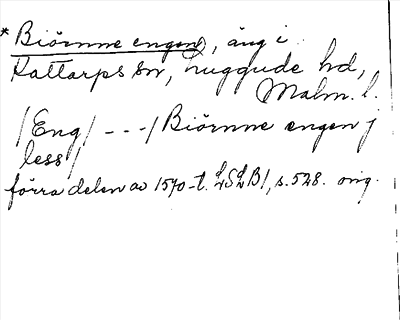 * Biörnne engen, äng i
Kattarps sn, Luggude hd,
Malm. l.
/Eng/ - - -/ Biörnne engen j
less/
förra delen av 1570-t. LSLB1, s. 528. orig.